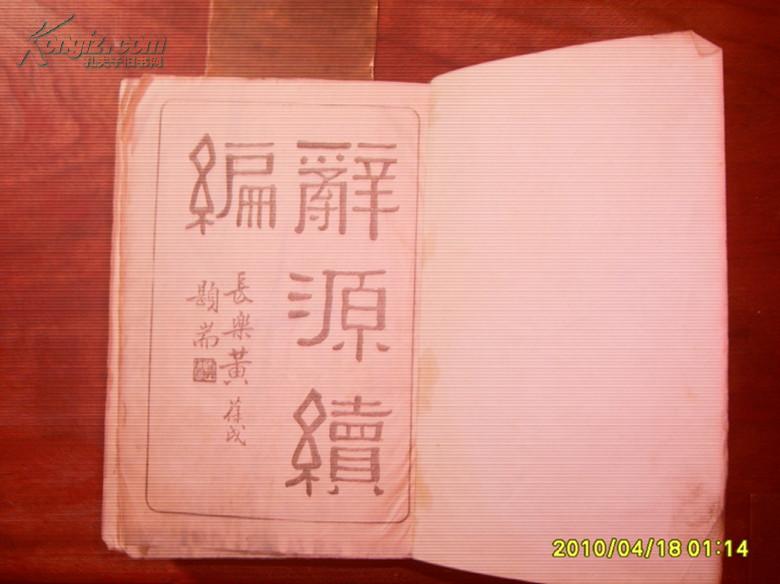 辭源續
編
長樂黃葆戉
題耑
Kongfz.com
孔夫子旧书网
2010/04/18 01:14